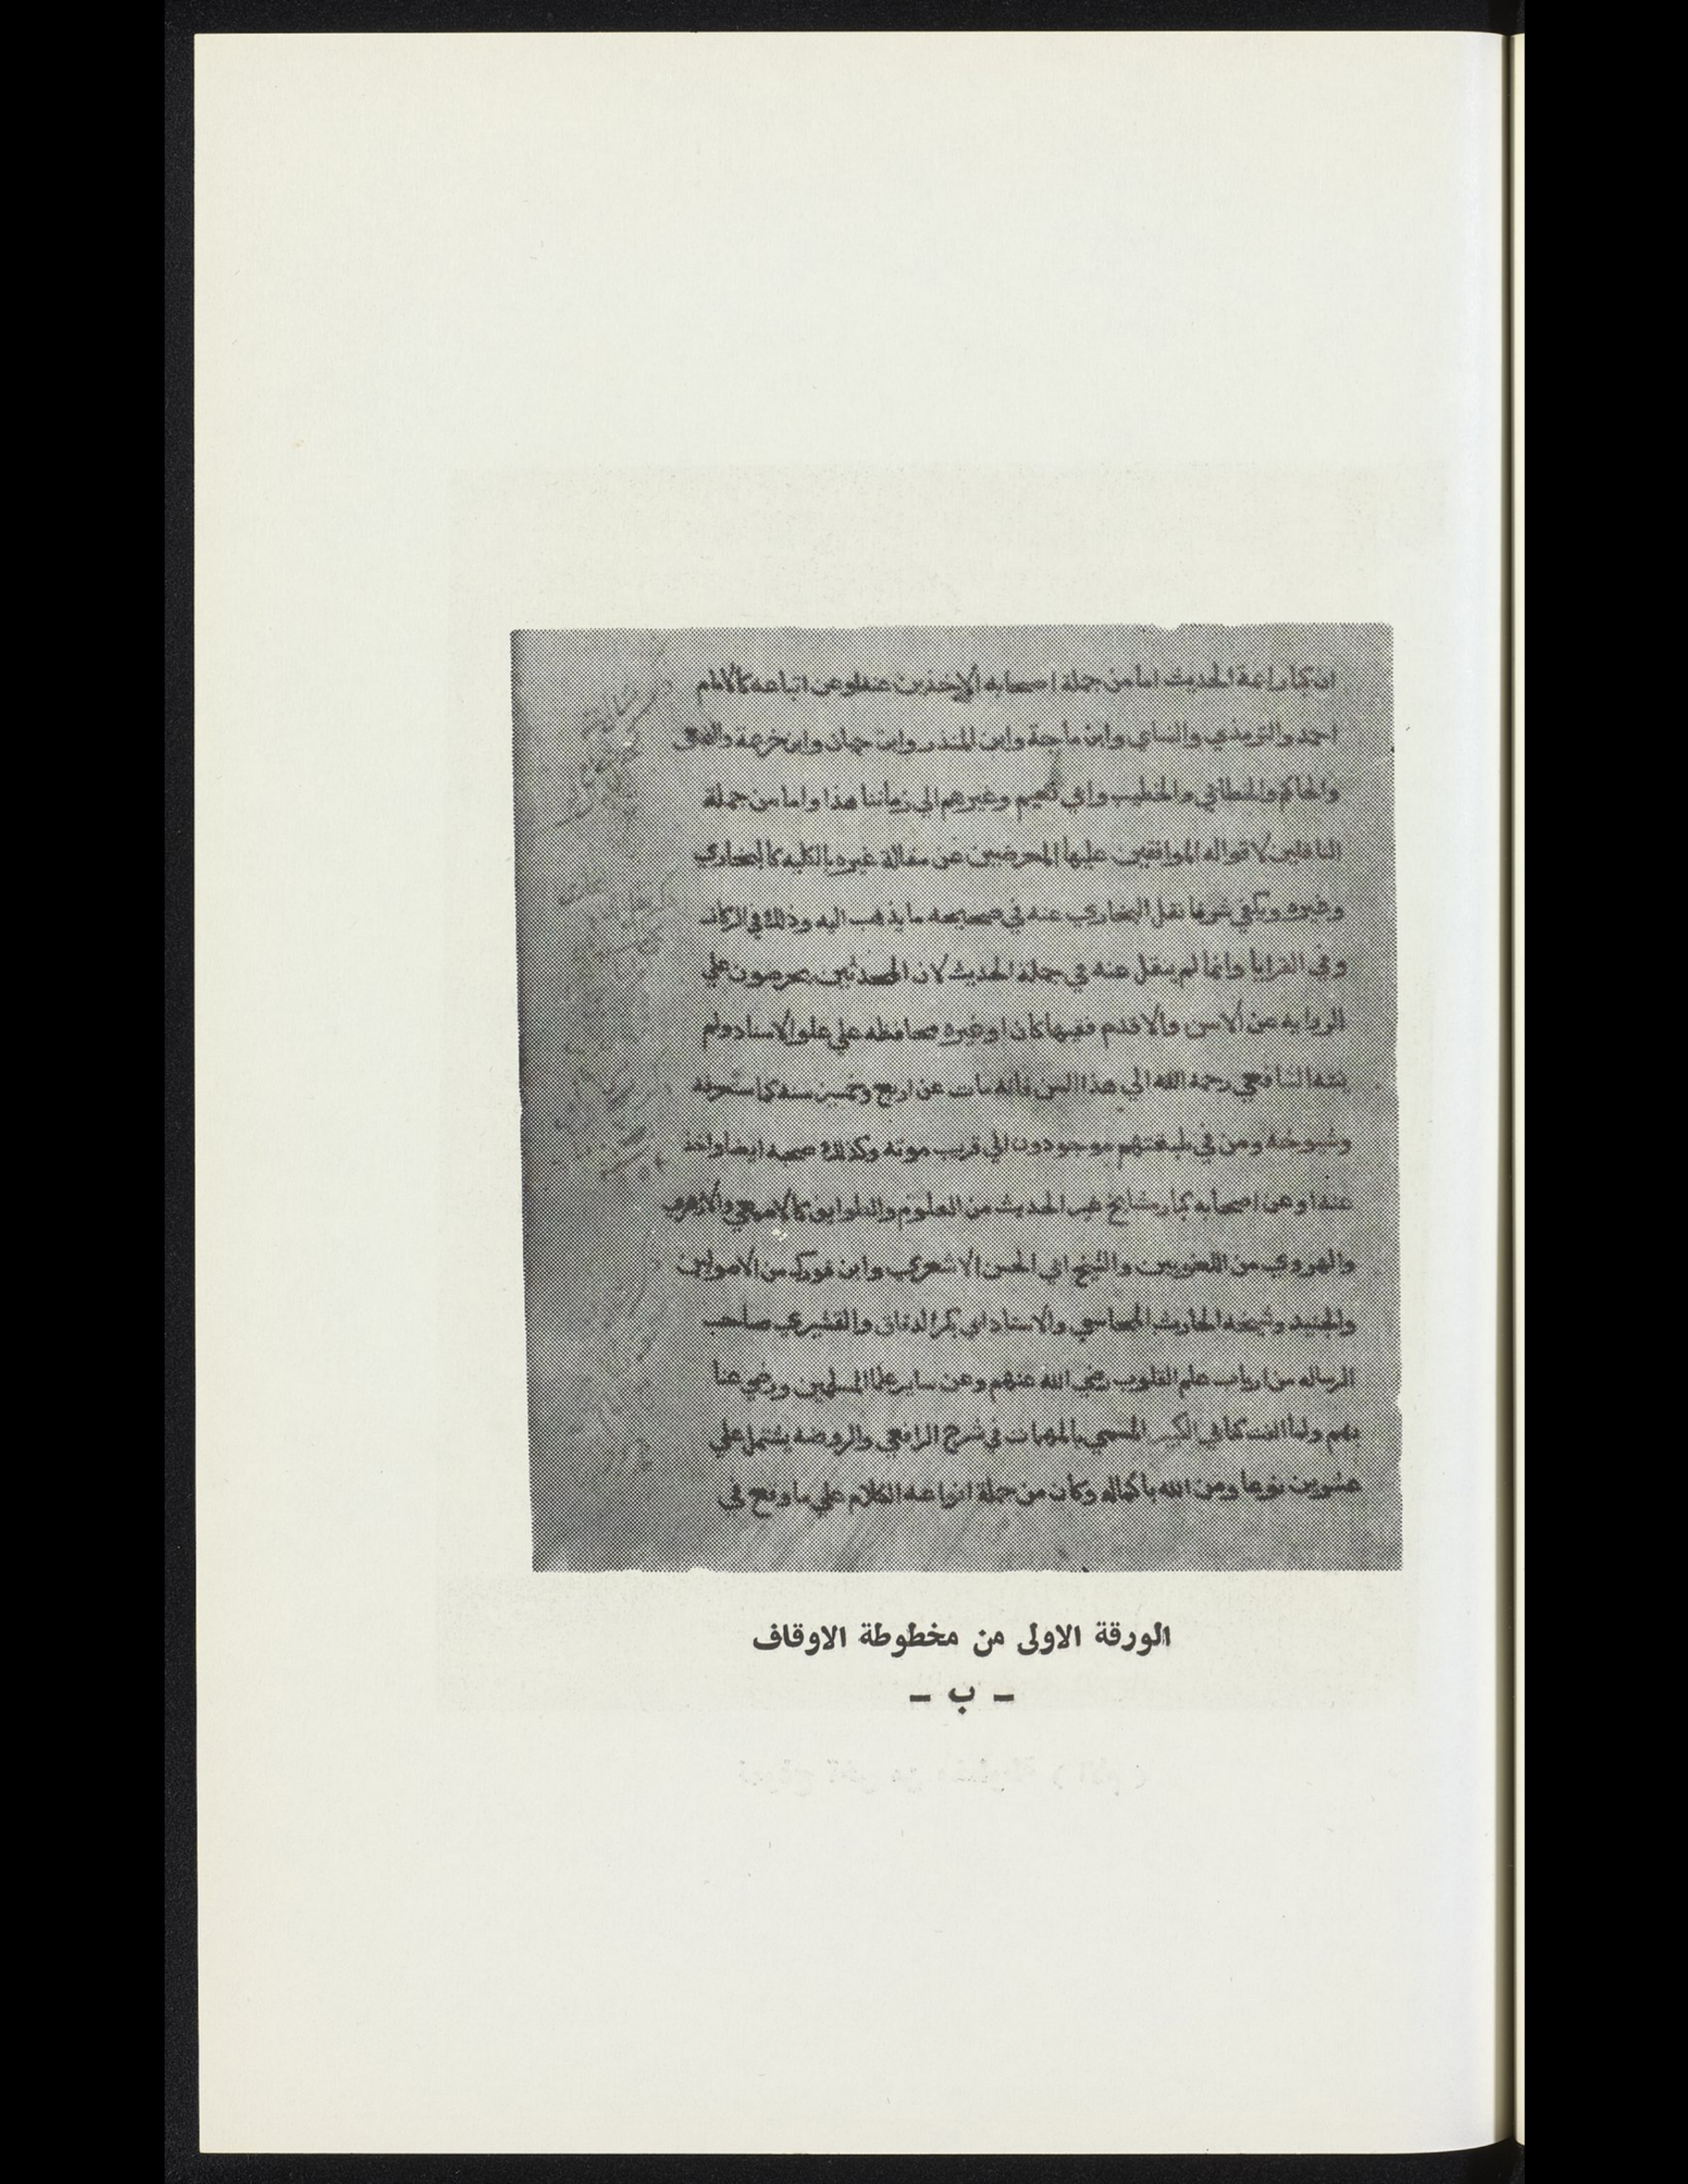 ان كبار ائمة الحديث اما من جملة اصحابه الاخذين عنه او عن اتباعه كالامام
احمد والترمذي والنساي وابن ماجة وابن المنذر وابن حبان وابن خزيمة والبيهقي
والحاكم والخطابي والخطيب وابي نعيم وغيرهم الي زماننا هذا واما من جملة
الناقلين لاقواله الموافقين عليها المعرضين عن مقالة غيره بالكليه كالبخاري
وغيره ويكفي شرفا نقل البخاري عنه في صحيحه ما يذهب اليه وذلك في الركاز
وفي العرايا وانما لم ينقل عنه في جملة الحديث لان المحدثين يحرصون علي
الروايه عن الاسن والاقدم فقيها كان او غيره محافظه علي علو الاسناد ولم
ينته الشافعي رحمه الله الي هذا السن فانه مات عن اربع وخمسين سنة كما ستعرفه
وشيوخه ومن في طبقتهم موجودون الي قريب موته وكذلك صحبه ايضا واخذ
عنه او عن اصحابه كبار مشايخ غير الحديث من العلوم والطوايف كالاصمعي والازهري
والهروي من اللغويين والشيخ ابي الحسن الاشعري وابن فورك من الاصوليين
والجنيد وشيخه الحارث المحاسبي والاستاد ابي بكر الدقاق والقشيري صاحب
الرساله من ارباب علم القلوب رضي الله عنهم وعن ساير علما المسلمين ورضي عنا
بهم ولما الفت كتابي الكبير المسمي بالمهمات في شرح الرافعي والروضه يشتمل علي
عشرين نوعا ومن الله باكماله وكان من جملة انواعه الكلام علي ما وقع في
الورقة الاولى من مخطوطة الاوقاف
– ب –